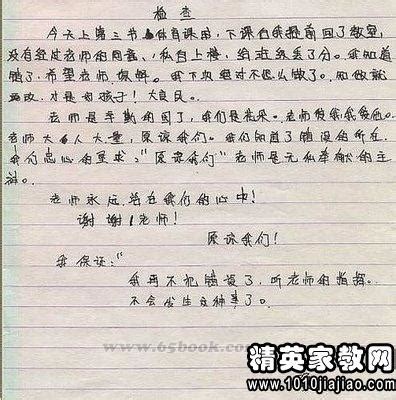 检查
今天上第三节体育课时,下课后我提前回了教室,
没有经过老师的同意,私自上楼,给班级丢了分。我知道
错了,希望老师原谅。我下次绝对不怎么做了。知错就
改,才是好孩子!大
老师是辛勤的园丁,我们是花朵。老师
老师大人大量,原谅我们。我们知道了错误的所在
我们忠心的恳求:“原谅我们”老师是无私奉献的主
老师永远活在我们的心中!
谢谢!老师!
原谅我们!
我保证:“
我再不犯错误了,听老师的指挥。
不会发生这种事了。
www.65book.com
精英家教网
www.1010jiajiao.com